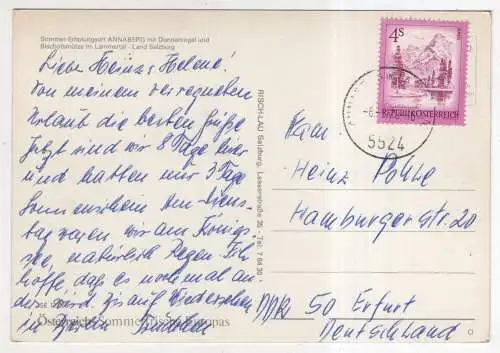 Sommer-Erholungsort ANNABERG mit Donnerkogel und
Bischofsmütze im Lammertal - Land Salzburg
Liebe Heinz, Helene!
Von meinem verregneten
Urlaub die besten Grüße
Jetzt sind wir 8 Tage hier
und hatten nur 3 Tage
Sonnenschein. Am Diens-
tag waren wir am Königs-
see, natürlich Regen. Ich
hoffe, daß es nochmal an-
ders wird. Bis auf Wiedersehen
in
Österreich Sommerfrische Europas
RISCH-LAU Salzburg, Lasserstraße 26 - Tel: 7 64 30
4S
REPUBLIK ÖSTERREICH
5524
Fam
Heinz Pohle
Hamburger Str. 20
DDR 50 Erfurt
Deutschland